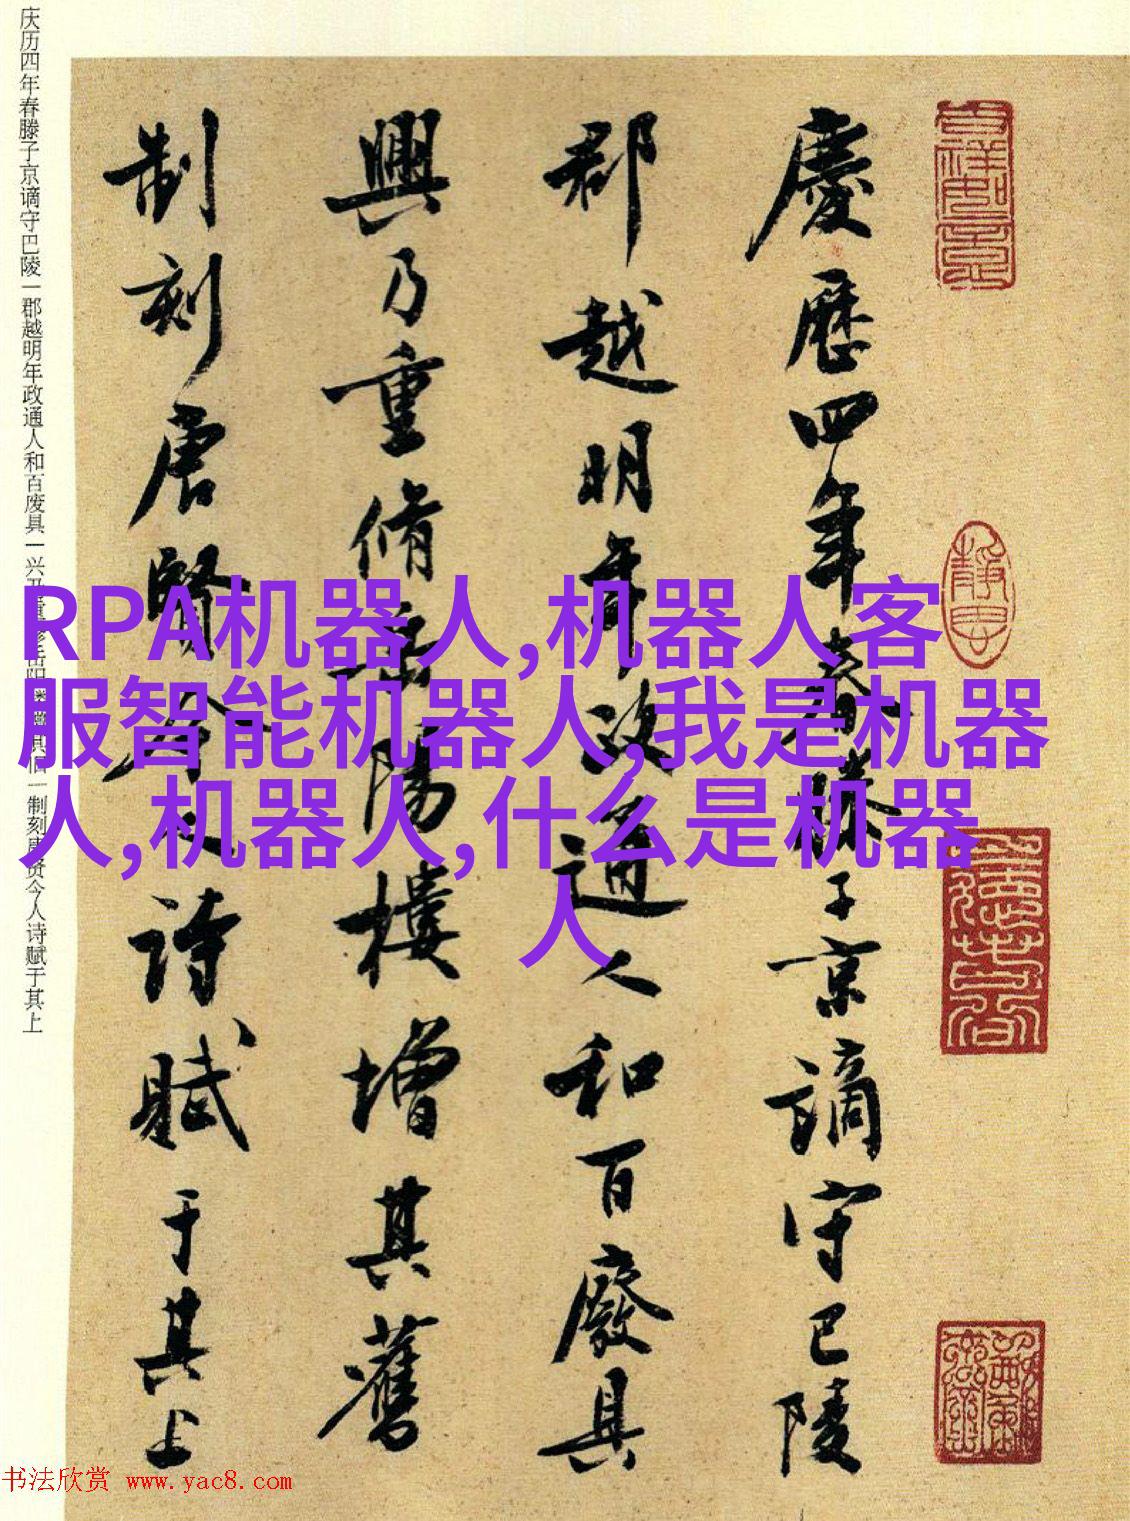 慶歷四年春滕子京謫守巴陵
郡越明年政通人和百廢具
興乃重脩岳陽樓增其舊
制刻唐賢今人詩賦于其上
庆历四年春滕子京谪守巴陵一郡越明年政通人和百废具一兴乃重修岳阳楼增其旧一制刻唐贤今人诗赋于其上
RPA机器人,机器人客
服智能机器人,我是机器
人,机器人,什么是机器
人
书法欣赏 www.yac8.com